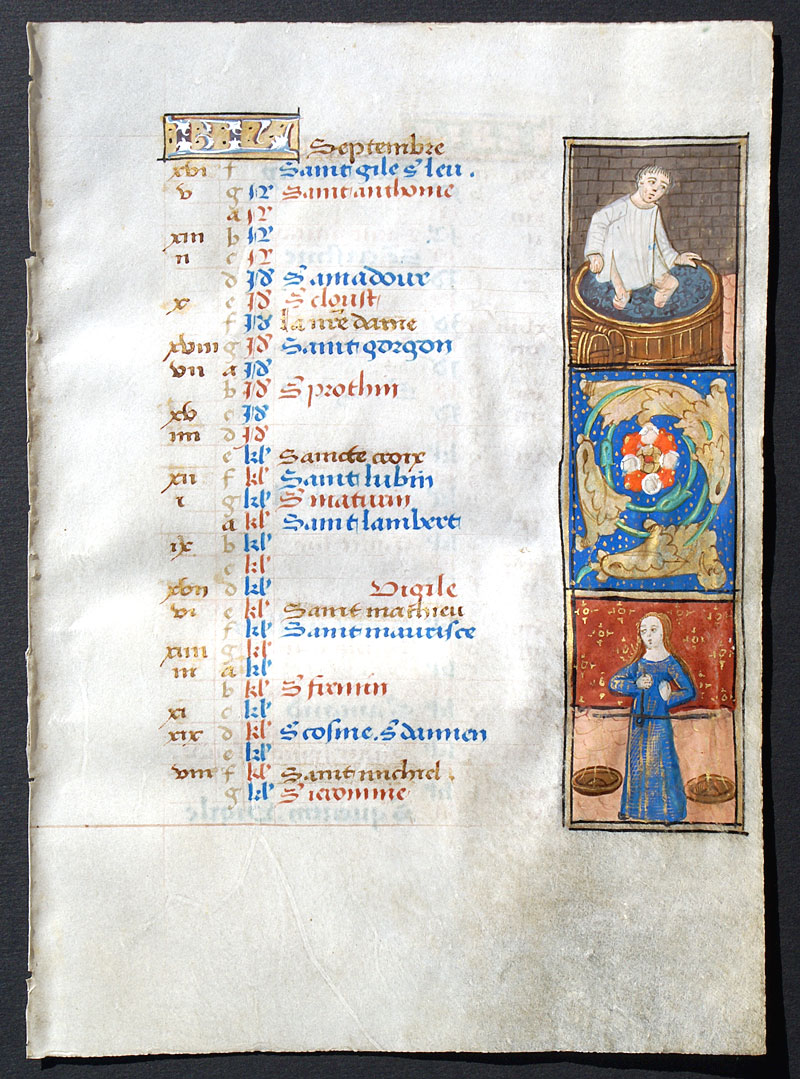 KL Septembre
xvi f Saint gile s' leu .
v g N Saint anthonie
a N
xiii b N
ii c N
d Id S amadour
x e Id S cloust
f Id La nre dame
xviii g Id Saint gorgon
vii a Id
b Id S prothin
xv c Id
iiii d Id
e kl Saincte croix
xii f kl Saint lubin
i g kl S maturin
a kl Saint lambert
ix b kl
c kl
xvii d kl Vigile
vi e kl Saint mathieu
f kl Saint maurisce
xiiii g kl
iii a kl
b kl S firmin
xi c kl
xix d kl S cosme . S damien
e kl
viii f kl Saint michiel
g kl S ieromme